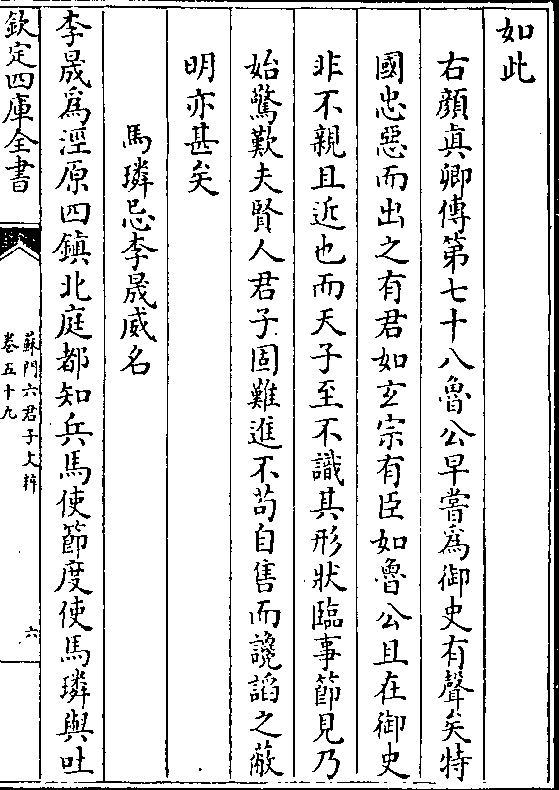 如此
右顔真卿傳第七十八魯公早嘗爲御史有聲矣特
國忠惡而出之有君如玄宗有臣如魯公且在御史
非不親且近也而天子至不識其形狀臨事節見乃
始驚歎夫賢人君子固難進不苟自售而讒謟之蔽
明亦甚矣
馬璘忌李晟威名
李晟爲涇原四鎮北庭都知兵馬使節度使馬璘與吐
欽定四庫全書
蘇門六君子文粹
卷五十九
六